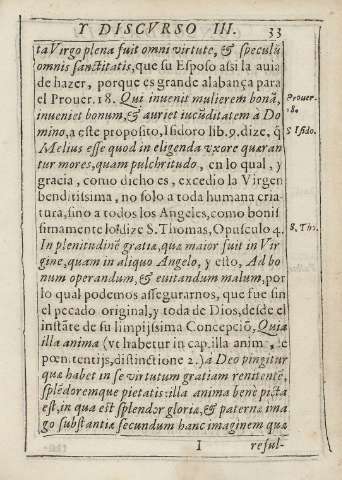 Y DISCVRSO III. 33
ta Virgo plena fuit omni virtute, & speculũ
omnis sanctitatis, que su Esposo assi la auia
de hazer, porque es grande alabança para
el Prouer. 18. Qui inuenit mulierem bonã,
inueniet bonum, & auriet iucũditatem à Do
mino, a este proposito, Isidoro lib. 9. dize, q̃
Melius esse quod in eligenda vxore quæran
tur mores, quam pulchritudo, en lo qual, y
gracia, como dicho es, excedio la Virgen
benditissima, no solo a toda humana cria
tura, sino a todos los Angeles, como bonis
simamente lo dize S. Thomas, Opusculo 4.
In plenitudinẽ gratiæ, quæ maior fuit in Vir
gine, quam in aliquo Angelo, y esto, Ad bo
num operandum, & euitandum malum, por
lo qual podemos assegurarnos, que fue sin
el pecado original, y toda de Dios, desde el
instãte de su limpijssima Concepciõ, Quia
illa anima (vt habetur in cap. illa anim , de
pœn tentijs, distinctione 2.) à Deo pingitur
quæ habet in se virtutum gratiam renitentẽ,
splẽdoremque pietatis: illa anima benè picta
est, in qua est splendor gloriæ, & paternæ ima
go substantiæ secundum hanc imaginem quæ
I resul-
Prouer.
18.
S Isido.
S. Th.